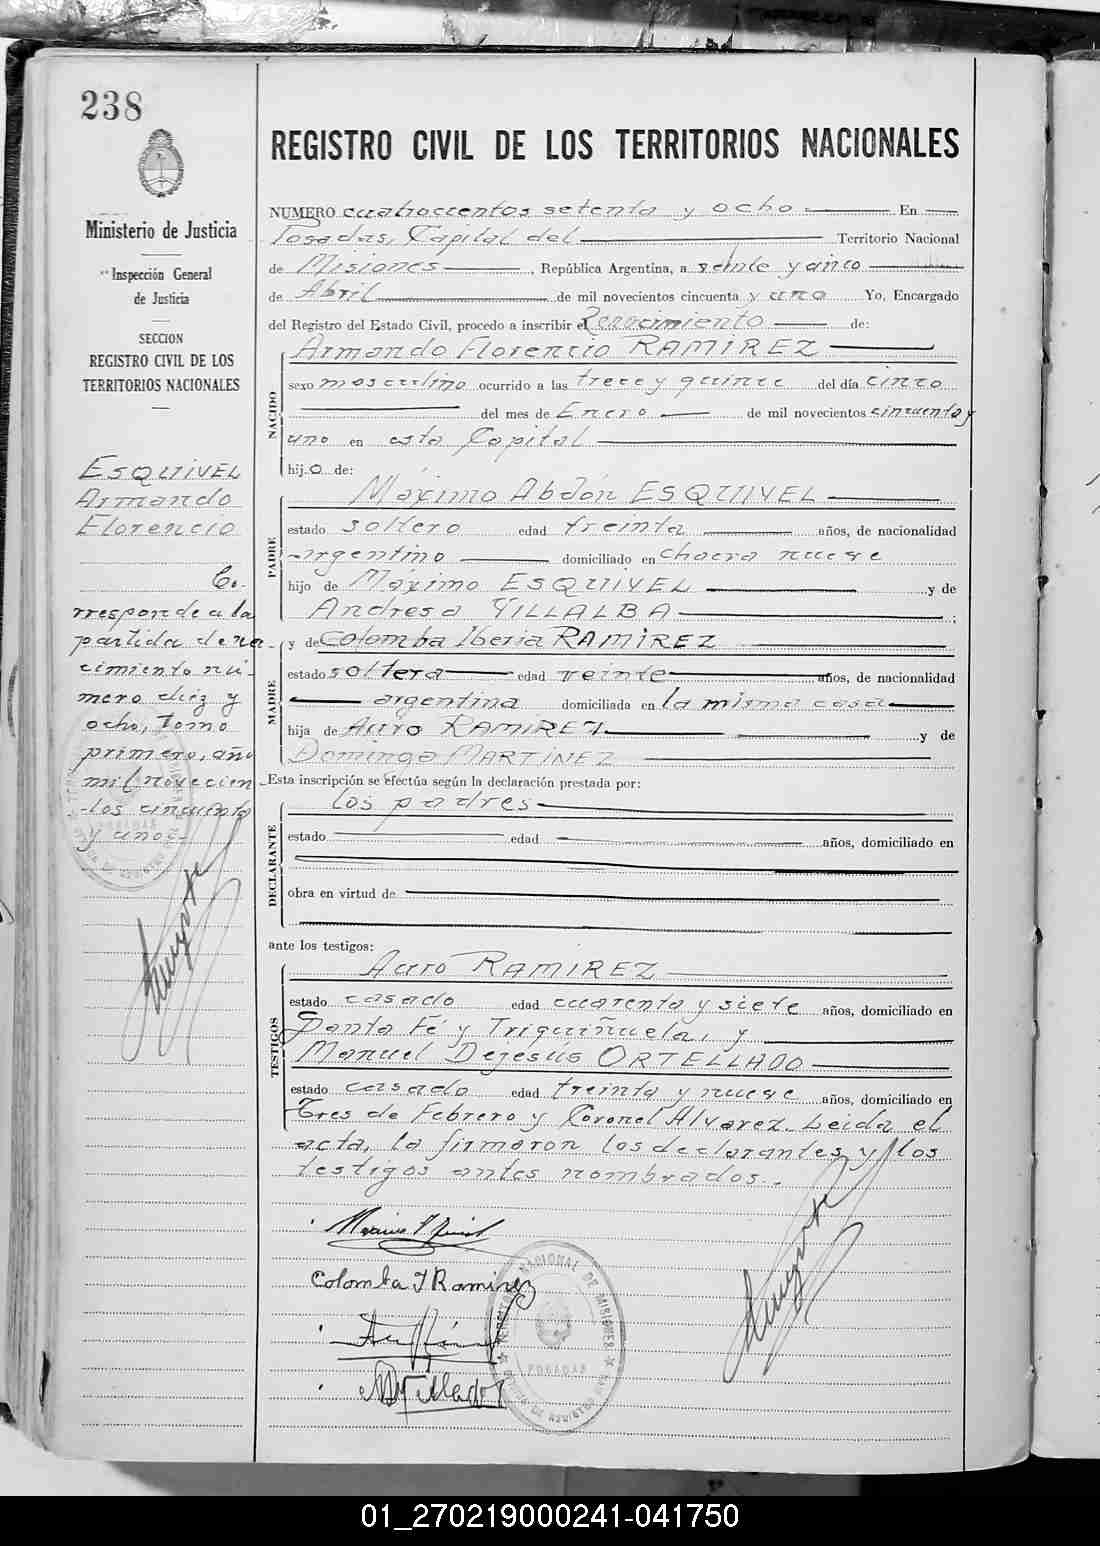 238
Ministerio de Justicia
Inspección General
de Justicia
SECCION
REGISTRO CIVIL DE LOS
TERRITORIOS NACIONALES
ESQUIVEL
Armando
Florencio
Co.
rresponde a la
partida de na
cimiento nú-
mero diez y
ocho, Tomo
primero, año
mil novecien
-tos cincuenta
y uno.-
REGISTRO CIVIL DE LOS TERRITORIOS NACIONALES
NUMERO cuatrocientos setenta y ocho En
Posadas, Capital del Territorio Nacional
de Misiones, República Argentina, a veinte y cinco
de Abril de mil novecientos cincuenta y uno Yo, Encargado
del Registro del Estado Civil, procedo a inscribir el Reconocimiento de:
NACIDO
Armando Florencio RAMIREZ
sexo masculino ocurrido a las trece y quince del día cinco
del mes de Enero de mil novecientos cincuenta y
uno en esta Capital
hijo de:
PADRE
Máximo Abdón ESQUIVEL
estado soltero edad treinta años, de nacionalidad
argentino domiciliado en chacra nueve
hijo de Máximo ESQUIVEL y de
Andresa VILLALBA;
MADRE
y de Colomba Iberia RAMIREZ
estado soltera edad veinte años, de nacionalidad
argentina domiciliada en la misma casa
hija de Auro RAMIREZ y de
Dominga MARTINEZ
Esta inscripción se efectúa según la declaración prestada por:
DECLARANTE
los padres
estado edad años, domiciliado en
obra en virtud de
ante los testigos:
TESTIGOS
Auro RAMIREZ
estado casado edad cuarenta y siete años, domiciliado en
Santa Fé y Triquiñuela, y
Manuel Dejesús ORTELLADO
estado casado edad treinta y nueve años, domiciliado en
Tres de Febrero y Coronel Alvarez. Leida el
acta, la firmaron los declarantes y los
testigos antes nombrados.
Colomba I Ramirez
TERRITORIO NACIONAL DE MISIONES
POSADAS
01_270219000241-041750